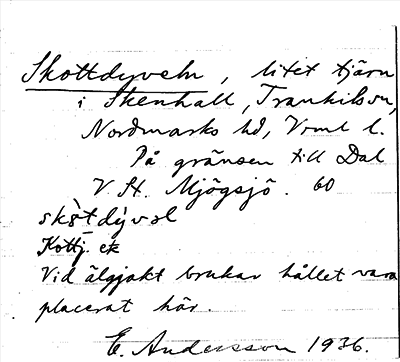 Skottdyveln, litet tjärn
i Skenhall, Trankilsou,
Nordmarks hd, Vrml l.
På gränsen till Dal
V. St. Mjögsjö. 60
skòtdývəl
Kottj. ek
Vid älgjakt brukar hållet vara
placerat här.
E. Andersson 1936.